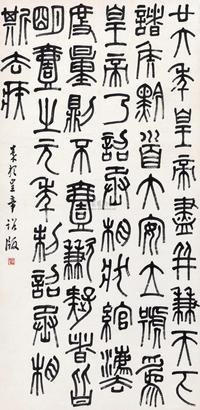 廿六年皇帝盡并兼天下
諸侯黔首大安立號為
皇帝乃詔丞相狀綰灋
度量則不壹歉疑者皆
明壹之元年制詔丞相
斯去疾
詔版